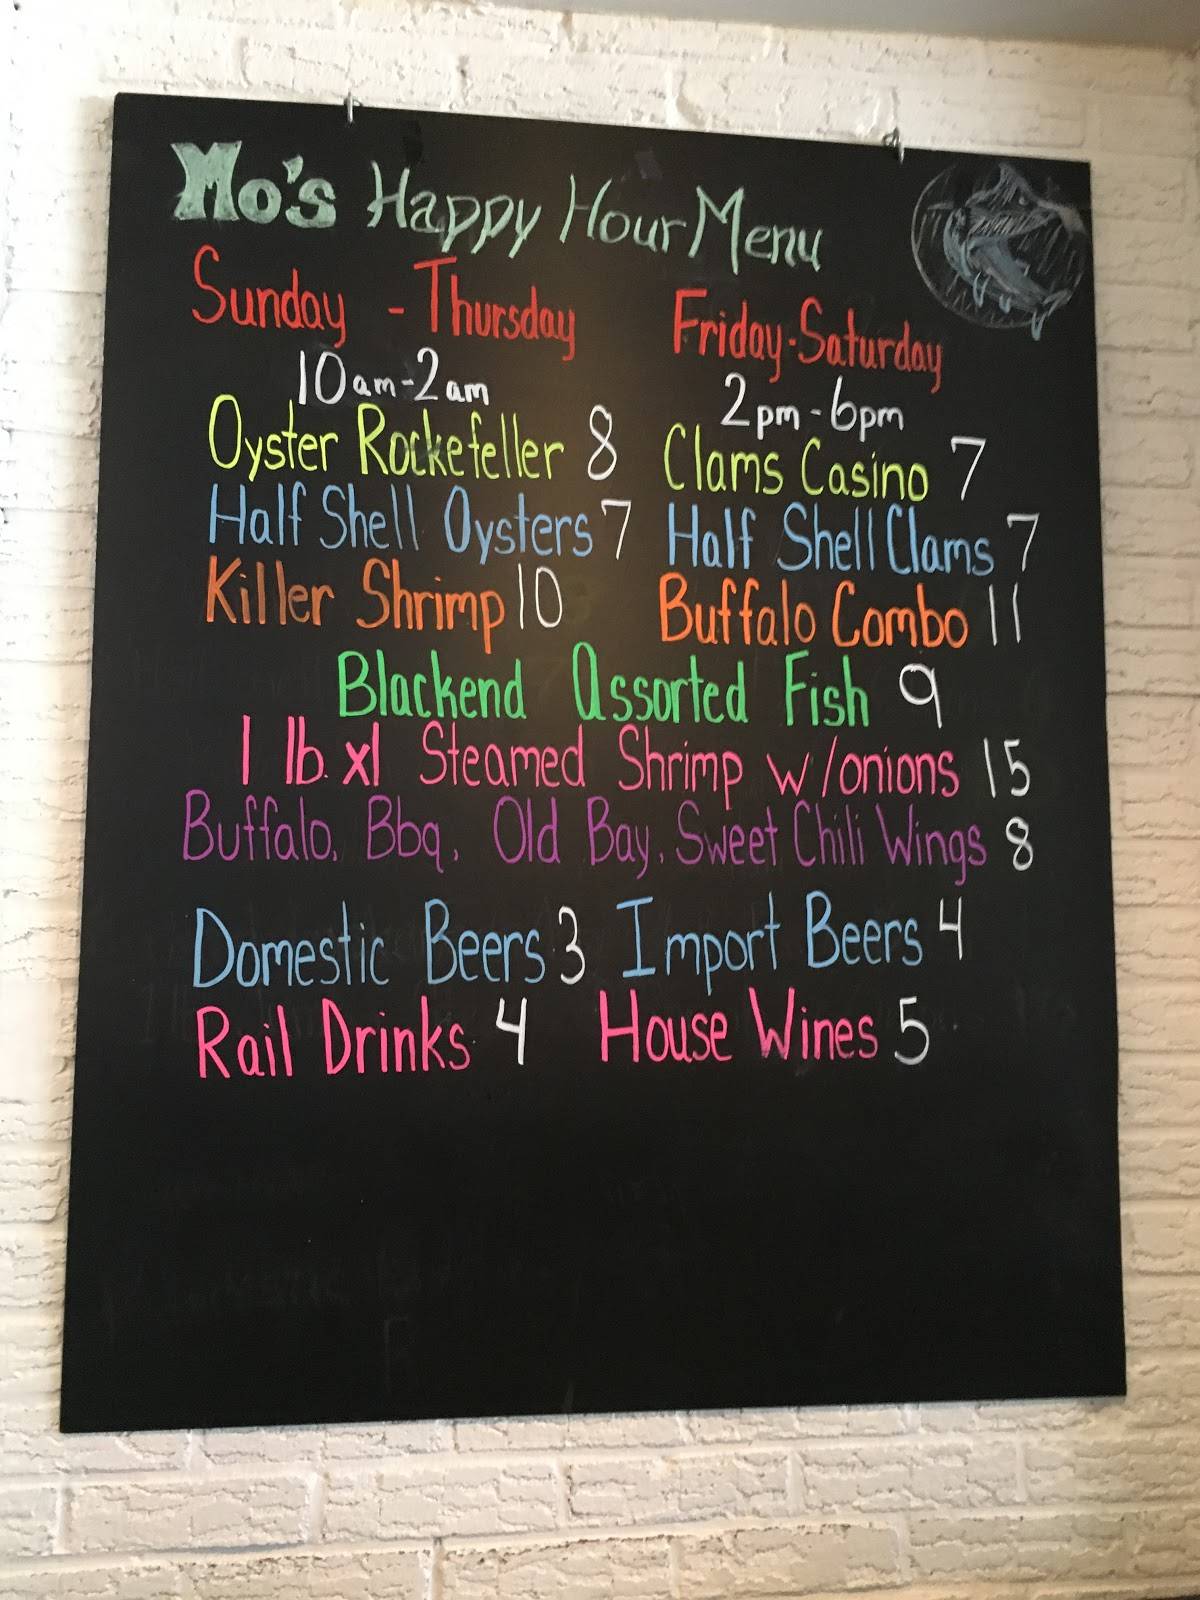 Mo's Happy Hour Menu
Sunday - Thursday Friday-Saturday
10am-2am 2pm-6pm
Oyster Rockefeller 8 Clams Casino 7
Half Shell Oysters 7 Half Shell Clams 7
Killer Shrimp 10 Buffalo Combo 11
Blackend Assorted Fish 9
1 lb. xl Steamed Shrimp w/onions 15
Buffalo, Bbq, Old Bay, Sweet Chili Wings 8
Domestic Beers 3 Import Beers 4
Rail Drinks 4 House Wines 5